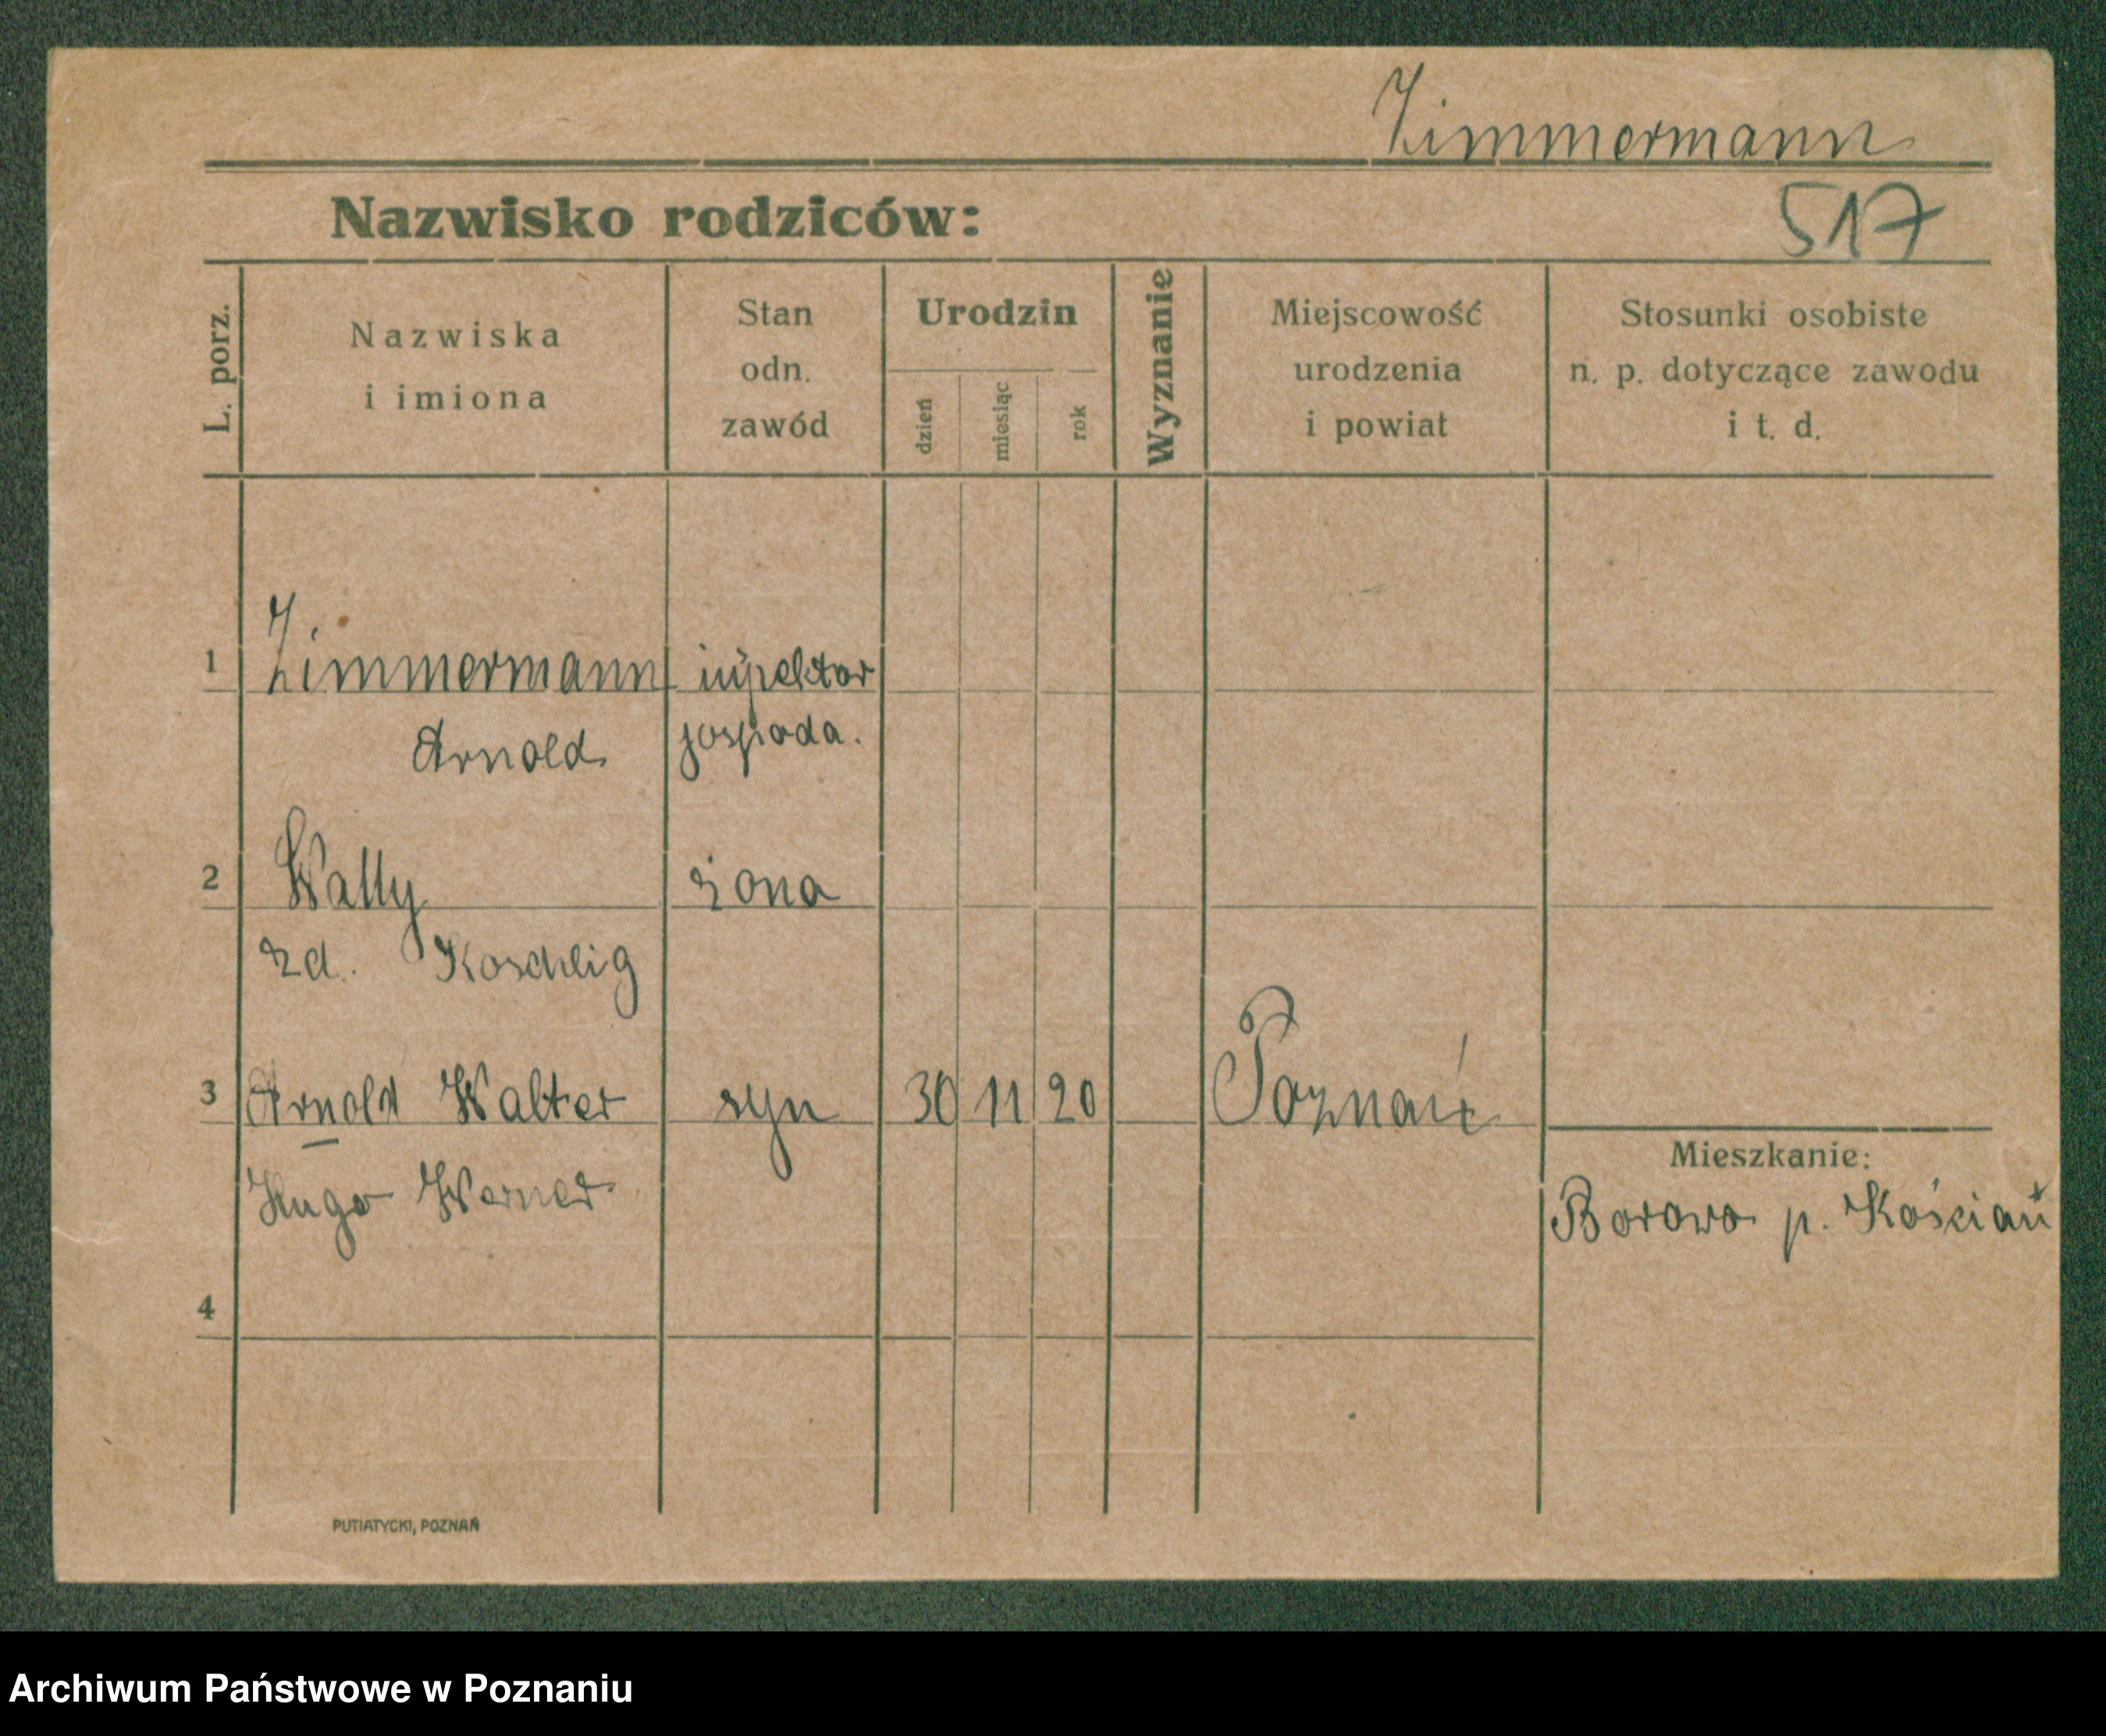 Zimmermann
Nazwisko rodziców:
517
L. porz.
Nazwiska
i imiona
Stan
odn.
zawód
Urodzin
dzień
miesiąc
rok
Wyznanie
Miejscowość
urodzenia
i powiat
Stosunki osobiste
n. p. dotyczące zawodu
i t. d.
1 Zimmermann inspektor
Arnold gospoda.
2 Wally żona
zd. Koschlig
3 Arnold Walter syn 30 11 20 Poznań
Mieszkanie:
Hugo Werner Borowo p. Kościan
4
PUTIATYCKI, POZNAŃ
Archiwum Państwowe w Poznaniu